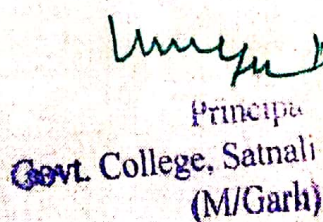 Principa
Govt. College, Satnali
(M/Garh)